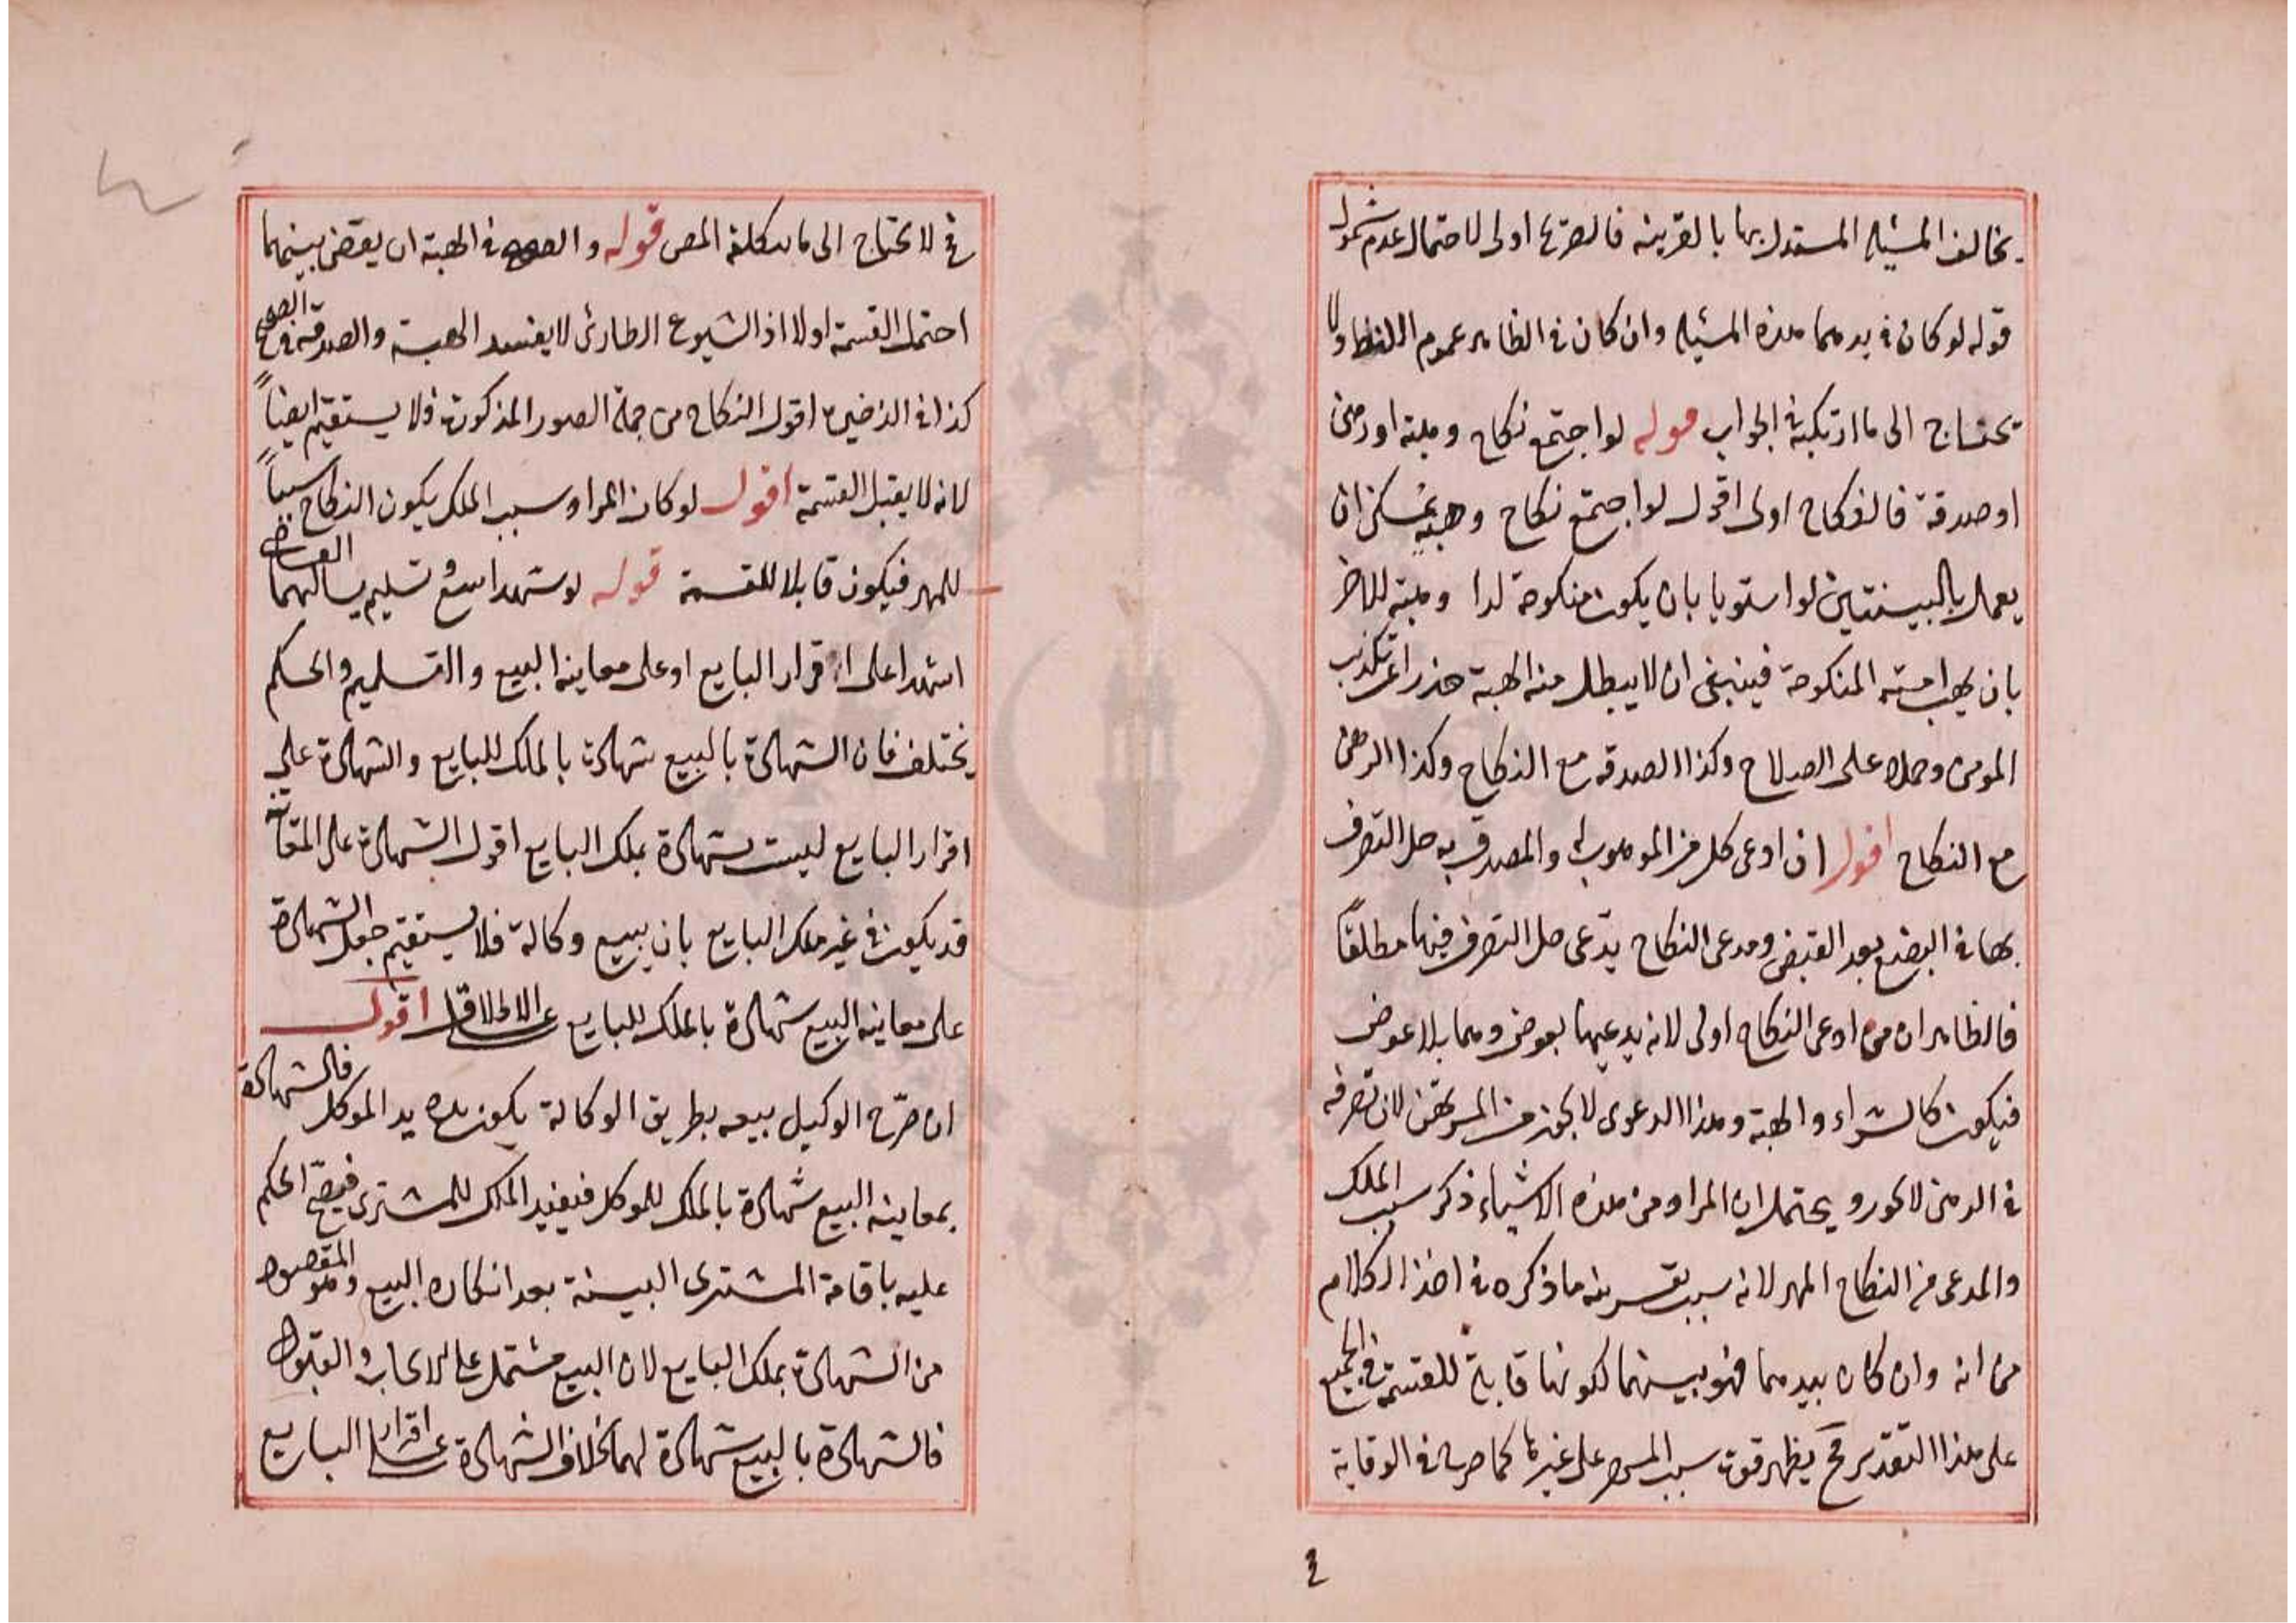 يخالف المسئلة المستدل بها بالقرينة فالصريح اولى لاحتمال عدم شمول
قوله لو كان في يدهما هذه المسئلة وان كان في الظاهر عموم اللفظ ولا
يحتاج الى ما ارتكبه في الجواب قوله لو اجتمع نكاح وهبة او رهن
او صدقة فالنكاح اولى اقول لو اجتمع نكاح وهبة يمكن ان
يعمل بالبينتين لو استويا بان يكون منكوحة لذا وهبة للاخر
بان يهب امته المنكوحة فينبغي ان لا يبطل منه الهبة حذرا عن تكذيب
المومن وحمله على الصلاح وكذا الصدقة مع النكاح وكذا الرهن
مع النكاح اقول ان ادعى كل من الموهوب له والمصدق به حل التصرف
بها في البضع بعد القبض ومدعى النكاح يدّعى حل التصرف فيها مطلقاً
فالظاهر ان من ادعى النكاح اولى لانه يدعيها بعوض وهما بلا عوض
فيكون كالشراء والهبة وهذا الدعوى لا يجوز من المرتهن لان تصرفه
في الرهن لا يجوز ويحتمل ان المراد من هذه الاشياء ذكر سبب الملك
والمدعى من النكاح المهر لانه سبب بقرينة ما ذكره في اخذ الكلام
من انه وان كان بيدهما فهو بينهما لكونها قابلة للقسمة في الجميع
على هذا التقدير فح يظهر قوت سبب المهر على غيرها كما صرح في الوقاية
٤
في لا يحتاج الى ما تكلفه المص قوله والصحيح في الهبة ان يقضى بينهما
احتمل القسمة او لا اذ الشيوع الطارئ لا يفسد الهبة والصدقة في الصحيح
كذا في الذخيرة اقول النكاح من جملة الصور المذكورة فلا يستقيم ايضاً
لانه لا يقبل القسمة اقول لو كان المراد سبب الملك يكون النكاح سبباً
للمهر فيكون قابلا للقسمة قوله لو شهدا بيع وتسليم يسالهما القاضى
اشهدا على اقرار البايع او على معاينة البيع والتسليم والحكم
يختلف فان الشهادة بالبيع شهادة بالملك للبايع والشهادة على
اقرار البايع ليست شهادة بملك البايع اقول الشهادة على المعاينة
قد يكون في غير ملك البايع بان يبيع وكالة فلا يستقيم جعل الشهادة
على معاينة البيع شهادة بالملك للبايع على الاطلاق اقول
ان صرّح الوكيل بيعه بطريق الوكالة يكون يده يد الموكل فالشهادة
بمعاينة البيع شهادة بالملك للموكل فيفيد الملك للمشترى فيصحّ الحكم
عليه باقامة المشترى البينة بعد انكاره البيع وهو المقصود
من الشهادة بملك البايع لان البيع مشتمل على الايجاب والقبول
فالشهادة بالبيع شهادة لهما بخلاف الشهادة على اقرار البايع